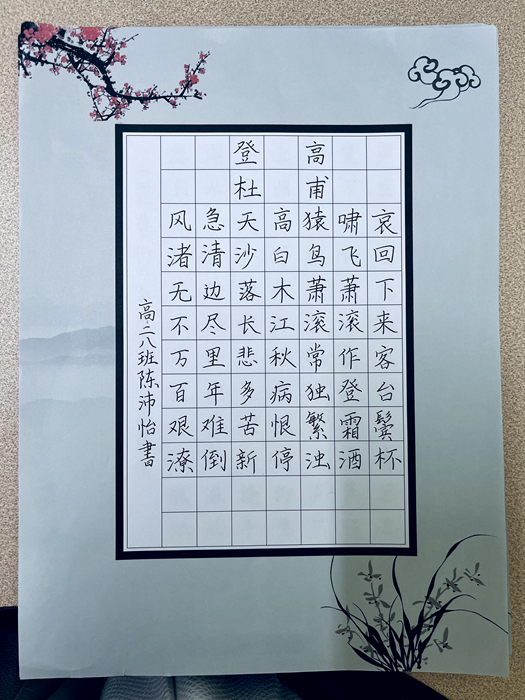 登高
杜甫
风急天高猿啸哀
渚清沙白鸟飞回
无边落木萧萧下
不尽长江滚滚来
万里悲秋常作客
百年多病独登台
艰难苦恨繁霜鬓
潦倒新停浊酒杯
高二八班陈沛怡書